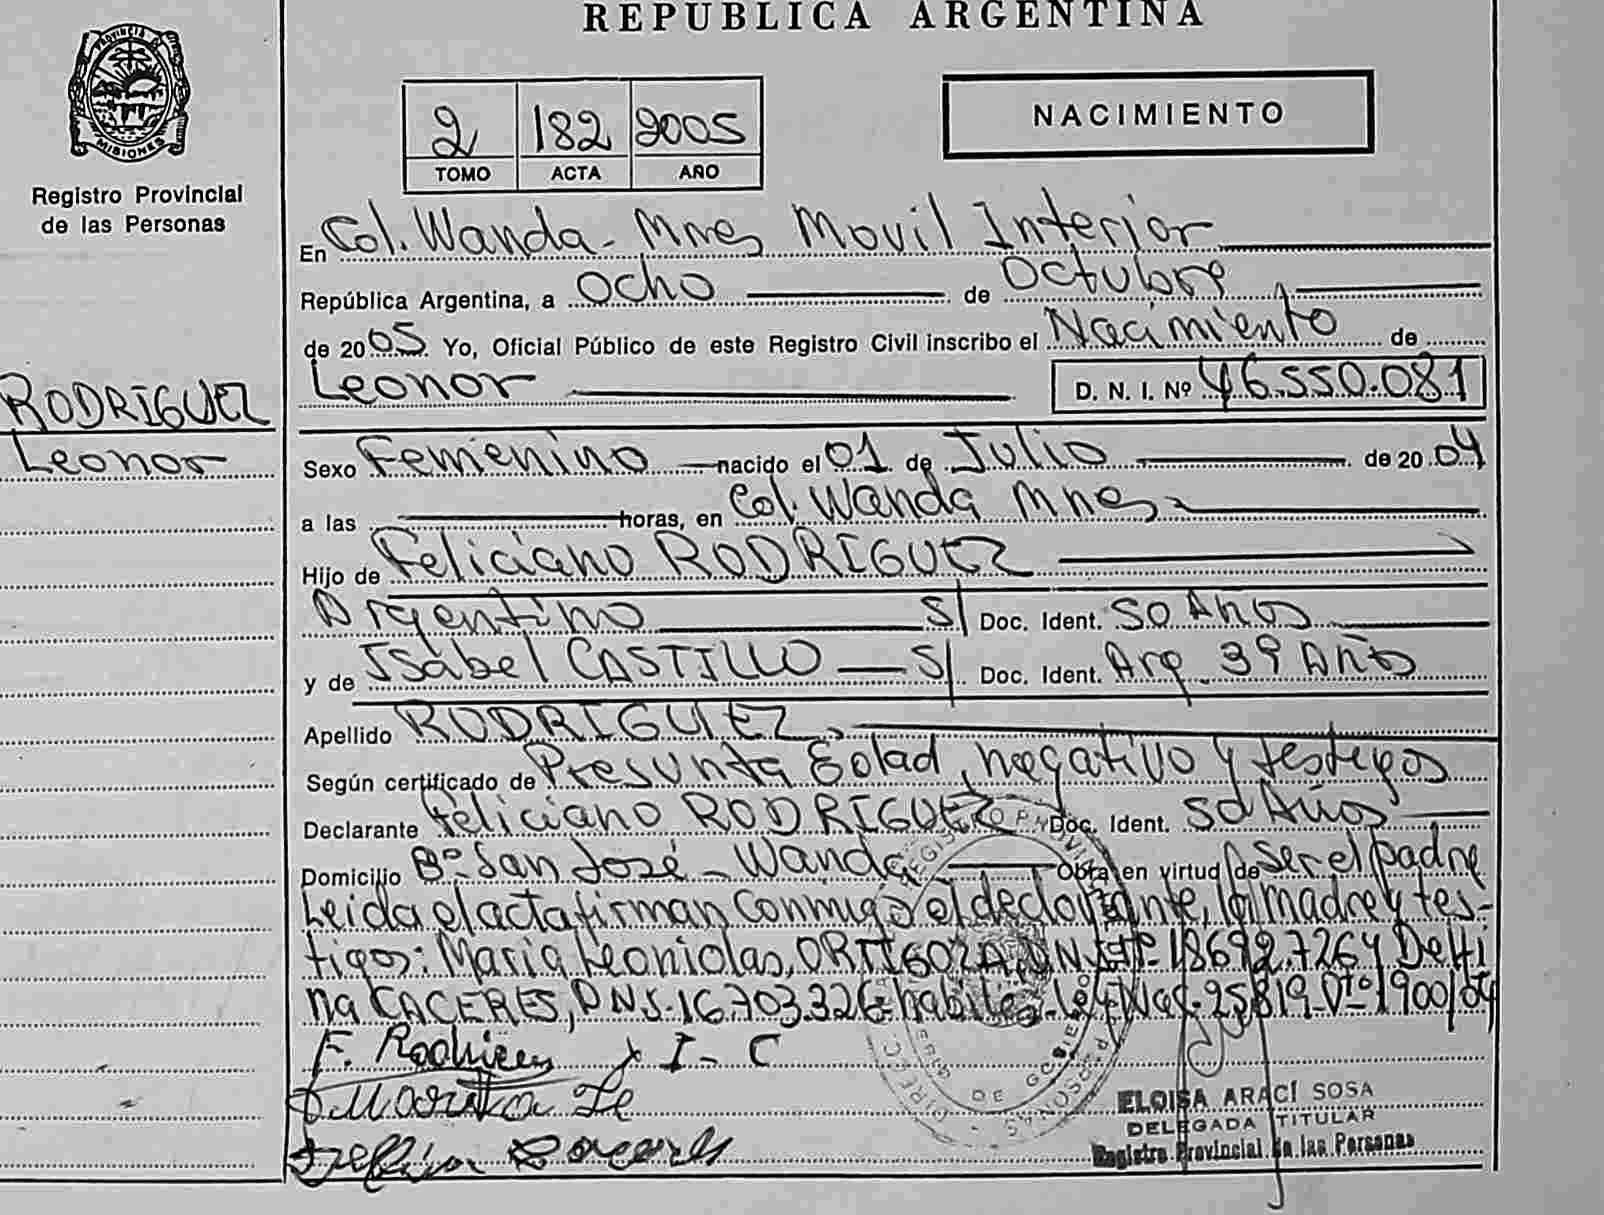 REPUBLICA ARGENTINA
PROVINCIA DE
MISIONES
Registro Provincial
de las Personas
2 182 2005
TOMO ACTA AÑO
NACIMIENTO
En Col. Wanda - Mnes Movil Interior
República Argentina, a ocho de Octubre
de 2005. Yo, Oficial Público de este Registro Civil inscribo el Nacimiento de
Leonor D. N. I. Nº 46.550.081
RODRIGUEZ
Leonor
Sexo Femenino nacido el 01 de Julio de 2004
a las horas, en Col. Wanda Mnes
Hijo de Feliciano RODRIGUEZ
Argentino S/ Doc. Ident. 50 Años
y de Isabel CASTILLO S/ Doc. Ident. Arg. 39 Años
Apellido RODRIGUEZ
Según certificado de Presunta Edad, negativo y testigos
Declarante Feliciano RODRIGUEZ Doc. Ident. 50 Años
Domicilio Bº San José - Wanda Obra en virtud de ser el padre
Leida el acta firman conmigo el declarante, la madre y tes-
tigos: Maria Leonidas, ORTIGOZA, DNI Nº 18.692.726 y Delfi
na CACERES, DNI. 16.703.326 habilit. Ley Nac. 25819 - Dtº 1900/04
F. Rodriguez x I - C
ELOISA ARACÍ SOSA
DELEGADA TITULAR
Registro Provincial de las Personas